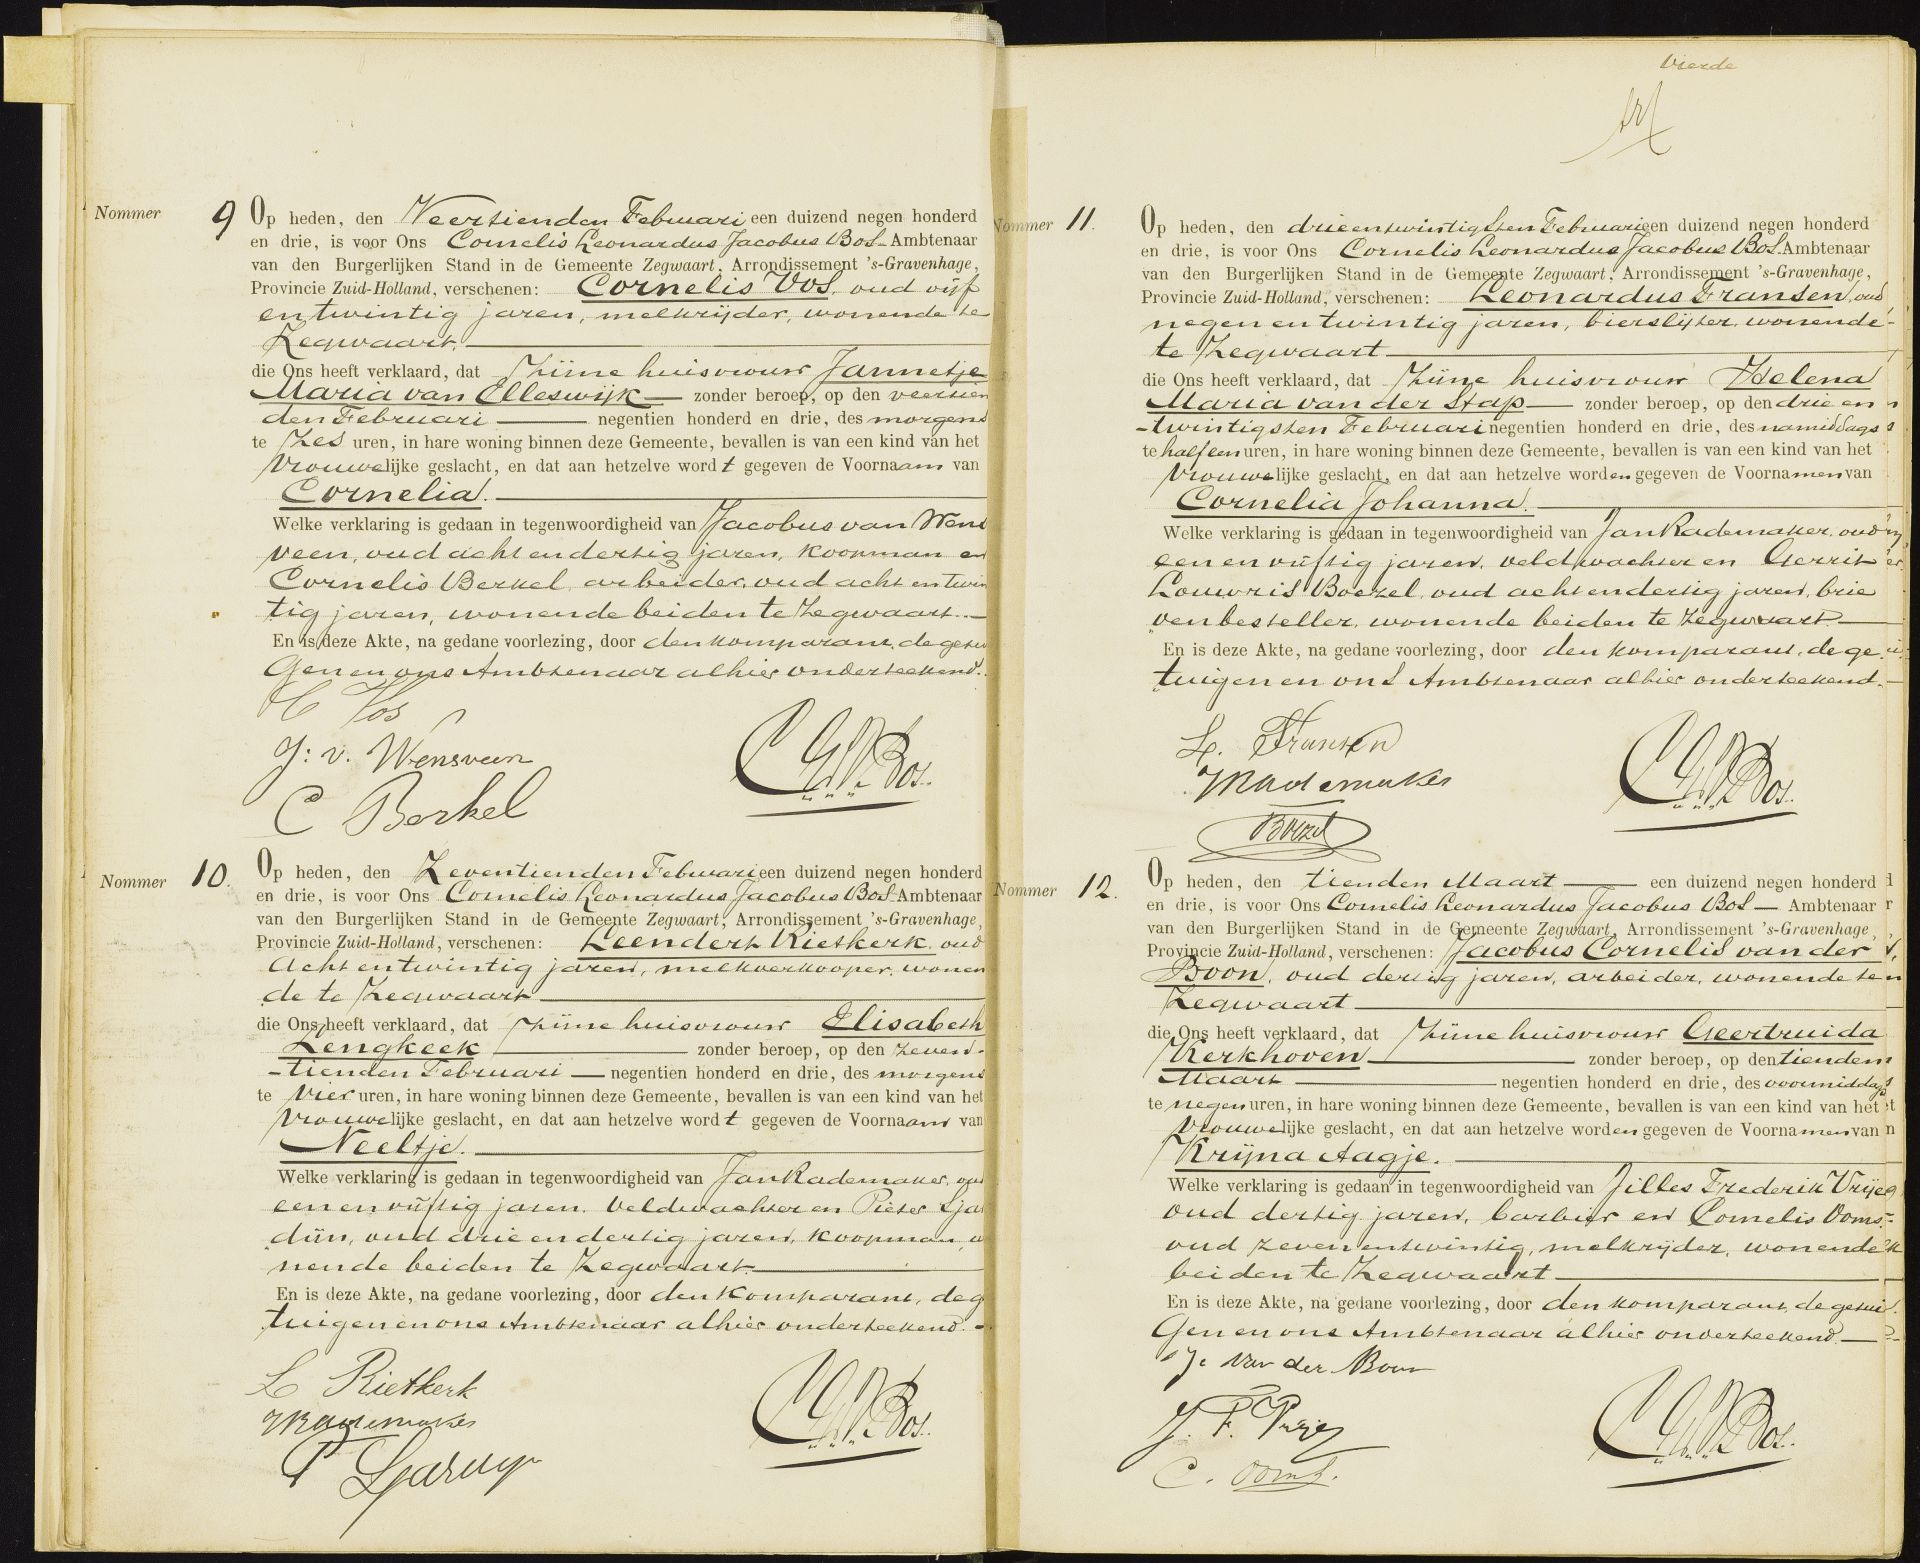 Nommer 9
Op heden, den Veertienden Februari een duizend negen honderd
en drie, is voor Ons Cornelis Leonardus Jacobus Bos Ambtenaar
van den Burgerlijken Stand in de Gemeente Zegwaart, Arrondissement 's-Gravenhage,
Provincie Zuid-Holland, verschenen: Cornelis Vos, oud vijf
en twintig jaren, melkrijder, wonende te
Zegwaart.
die Ons heeft verklaard, dat zijne huisvrouw Jannetje
Maria van Elleswijk zonder beroep, op den veertien
den Februari negentien honderd en drie, des morgens
te zes uren, in hare woning binnen deze Gemeente, bevallen is van een kind van het
vrouwelijke geslacht, en dat aan hetzelve wordt gegeven de Voornaam van
Cornelia.
Welke verklaring is gedaan in tegenwoordigheid van Jacobus van Wens
veen, oud acht en dertig jaren, koopman en
Cornelis Berkel, arbeider, oud acht en twin
tig jaren, wonende beiden te Zegwaart.
En is deze Akte, na gedane voorlezing, door den komparant, de getui
gen en ons Ambtenaar alhier onderteekend.
C Vos
J. v. Wensveen
C Berkel
C L J Bos.
Nommer 10.
Op heden, den Zeventienden Februari een duizend negen honderd
en drie, is voor Ons Cornelis Leonardus Jacobus Bos Ambtenaar
van den Burgerlijken Stand in de Gemeente Zegwaart, Arrondissement 's-Gravenhage,
Provincie Zuid-Holland, verschenen: Leendert Rietkerk, oud
acht en twintig jaren, melkverkooper, wonen
de te Zegwaart
die Ons heeft verklaard, dat zijne huisvrouw Elisabeth
Lengkeek zonder beroep, op den zeven-
-tienden Februari negentien honderd en drie, des morgens
te vier uren, in hare woning binnen deze Gemeente, bevallen is van een kind van het
vrouwelijke geslacht, en dat aan hetzelve wordt gegeven de Voornaam van
Neeltje.
Welke verklaring is gedaan in tegenwoordigheid van Jan Rademaker, oud
een en vijftig jaren, veldwachter en Pieter
oud drie en dertig jaren, koopman, wo
nende beiden te Zegwaart.
En is deze Akte, na gedane voorlezing, door den komparant, de g
tuigen en ons Ambtenaar alhier onderteekend.
L Rietkerk
J Rademaker
P
C L J Bos.
vierde
Nommer 11.
Op heden, den drieentwintigsten Februari een duizend negen honderd
en drie, is voor Ons Cornelis Leonardus Jacobus Bos Ambtenaar
van den Burgerlijken Stand in de Gemeente Zegwaart, Arrondissement 's-Gravenhage,
Provincie Zuid-Holland, verschenen: Leonardus Fransen, oud
negen en twintig jaren, bierslijter, wonende
te Zegwaart
die Ons heeft verklaard, dat zijne huisvrouw Helena
Maria van der Stap zonder beroep, op den drie en
-twintigsten Februari negentien honderd en drie, des namiddags
te half een uren, in hare woning binnen deze Gemeente, bevallen is van een kind van het
vrouwelijke geslacht, en dat aan hetzelve worden gegeven de Voornamen van
Cornelia Johanna.
Welke verklaring is gedaan in tegenwoordigheid van Jan Rademaker, oud
een en vijftig jaren, veldwachter en Gerrit
Louwris Boezel, oud acht en dertig jaren, brie
venbesteller, wonende beiden te Zegwaart.
En is deze Akte, na gedane voorlezing, door den komparant, de ge
tuigen en ons Ambtenaar alhier onderteekend.
L. Fransen
J Rademaker
Boezel
C L J Bos.
Nommer 12.
Op heden, den tienden Maart een duizend negen honderd
en drie, is voor Ons Cornelis Leonardus Jacobus Bos Ambtenaar
van den Burgerlijken Stand in de Gemeente Zegwaart, Arrondissement 's-Gravenhage,
Provincie Zuid-Holland, verschenen: Jacobus Cornelis van der
Boon, oud dertig jaren, arbeider, wonende te
Zegwaart
die Ons heeft verklaard, dat zijne huisvrouw Geertruida
Kerkhoven zonder beroep, op den tienden
Maart negentien honderd en drie, des voormiddags
te negen uren, in hare woning binnen deze Gemeente, bevallen is van een kind van het
vrouwelijke geslacht, en dat aan hetzelve worden gegeven de Voornamen van
Krijna Aagje.
Welke verklaring is gedaan in tegenwoordigheid van Jilles Frederik
oud dertig jaren, barbier en Cornelis Ooms,
oud zeven en twintig, melkrijder, wonende
beiden te Zegwaart
En is deze Akte, na gedane voorlezing, door den komparant, de getui
gen en ons Ambtenaar alhier onderteekend.
J. C. van der Boon
J. F.
C. Ooms.
C L J Bos.